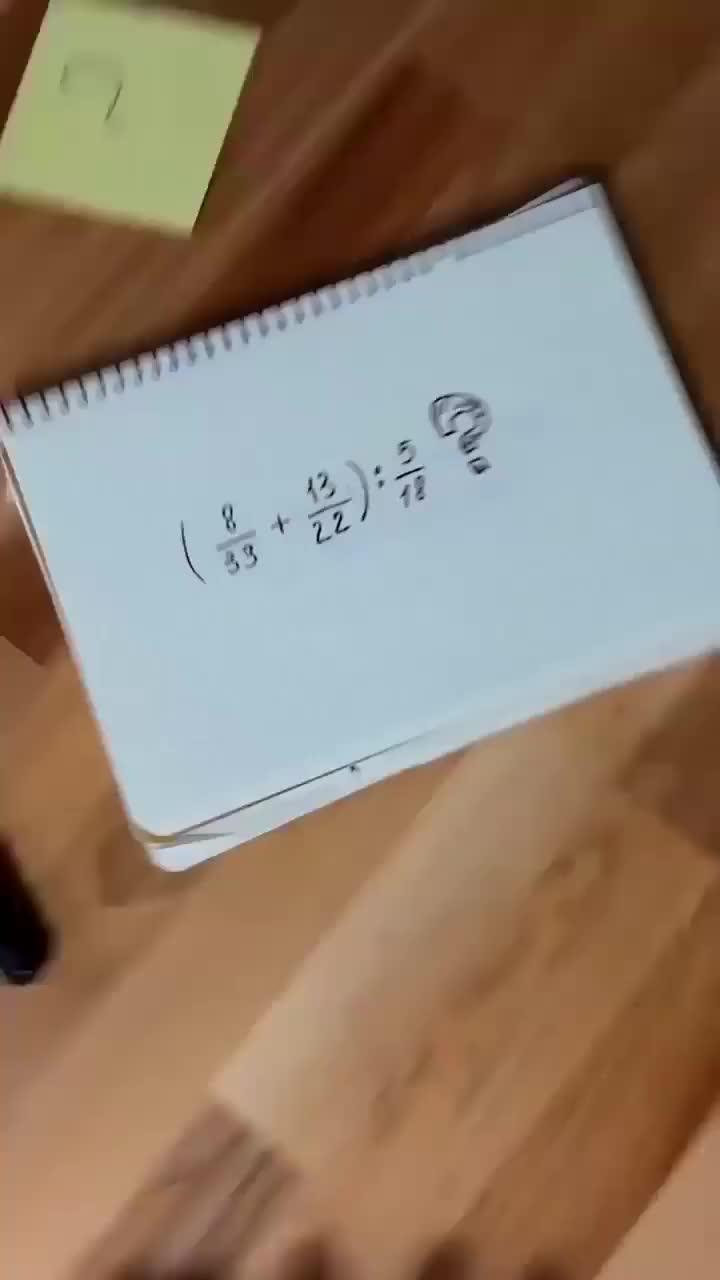 ?
(8/33 + 13/22) : 5/18 ?